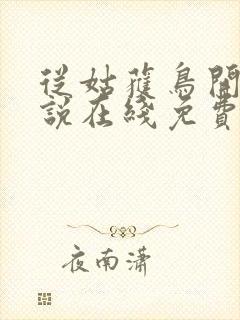 從姑獲鳥開
說在綫免費
夜南瀟